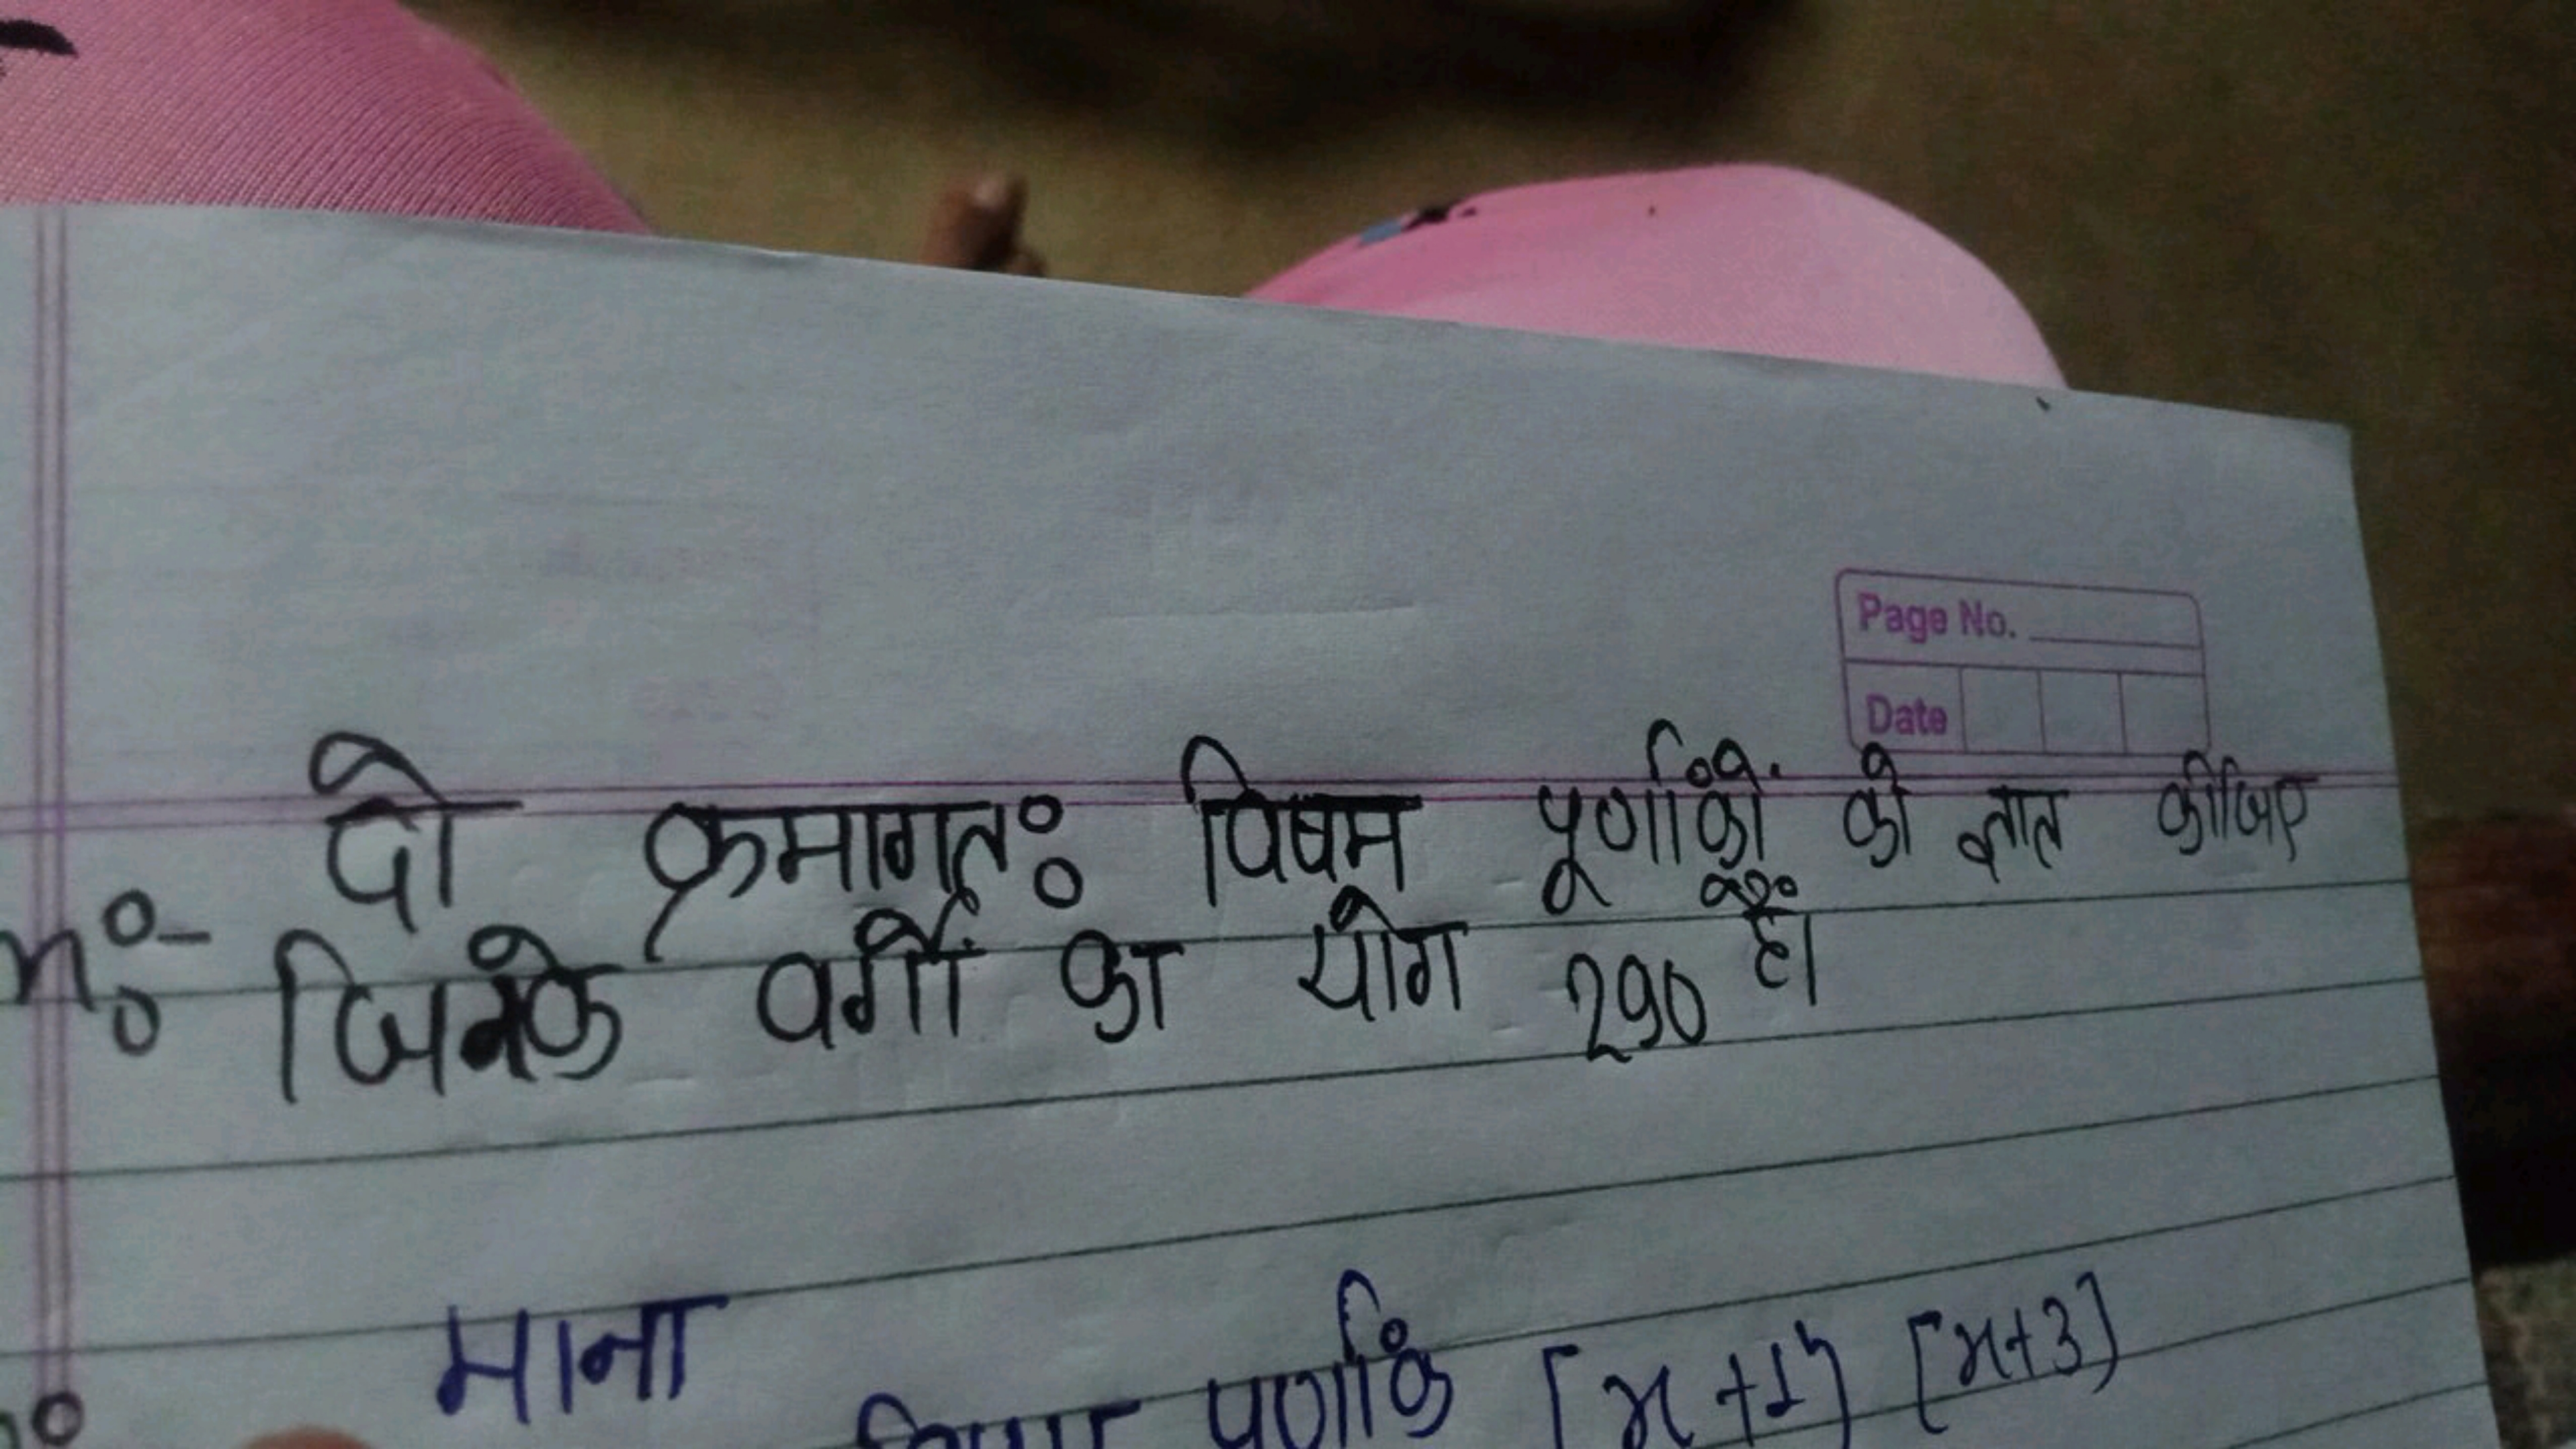 Page No.
Date
दो क्रमागतः विषम पूर्णांकों को ज्ञात कीजिए
जिनके वर्गों का योग 290 है।
माना
पूर्णांक [x+1] [x+3]